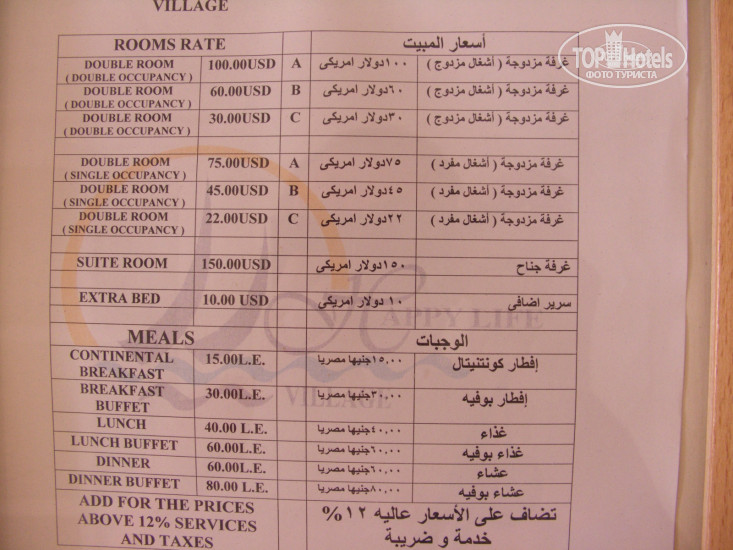 VILLAGE
TOP Hotels
ФОТО ТУРИСТА
ROOMS RATE أسعار المبيت
DOUBLE ROOM 100.00USD A ١٠٠دولار امريكى غرفة مزدوجة ( أشغال مزدوج )
( DOUBLE OCCUPANCY )
DOUBLE ROOM 60.00USD B ٦٠دولار امريكى غرفة مزدوجة ( أشغال مزدوج )
( DOUBLE OCCUPANCY )
DOUBLE ROOM 30.00USD C ٣٠دولار امريكى غرفة مزدوجة ( أشغال مزدوج )
( DOUBLE OCCUPANCY )
DOUBLE ROOM 75.00USD A ٧٥دولار امريكى غرفة مزدوجة ( أشغال مفرد )
( SINGLE OCCUPANCY )
DOUBLE ROOM 45.00USD B ٤٥دولار امريكى غرفة مزدوجة ( أشغال مفرد )
( SINGLE OCCUPANCY )
DOUBLE ROOM 22.00USD C ٢٢دولار امريكى غرفة مزدوجة ( أشغال مفرد )
( SINGLE OCCUPANCY )
SUITE ROOM 150.00USD ١٥٠دولار امريكى غرفة جناح
EXTRA BED 10.00 USD ١٠ دولار امريكى سرير اضافى
HAPPY LIFE
VILLAGE
MEALS الوجبات
CONTINENTAL 15.00L.E. ١٥,٠٠جنيها مصريا إفطار كونتنيتال
BREAKFAST
BREAKFAST 30.00L.E. ٣٠,٠٠جنيها مصريا إفطار بوفيه
BUFFET
LUNCH 40.00 L.E. ٤٠,٠٠جنيها مصريا غذاء
LUNCH BUFFET 60.00L.E. ٦٠,٠٠جنيها مصريا غذاء بوفيه
DINNER 60.00L.E. ٦٠,٠٠جنيها مصريا عشاء
DINNER BUFFET 80.00 L.E. ٨٠,٠٠جنيها مصريا عشاء بوفيه
ADD FOR THE PRICES
ABOVE 12% SERVICES
AND TAXES
تضاف على الأسعار عاليه ١٢%
خدمة و ضريبة